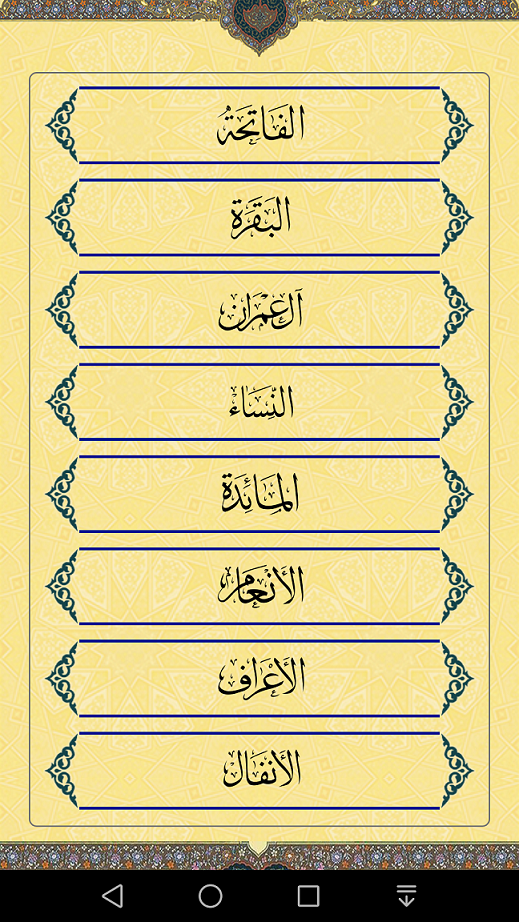 الفَاتِحَةُ
البَقَرَة
آل عِمْرَان
النِّسَاءْ
المَائِدَة
الأَنْعَام
الأَعْرَاف
الأَنفَال